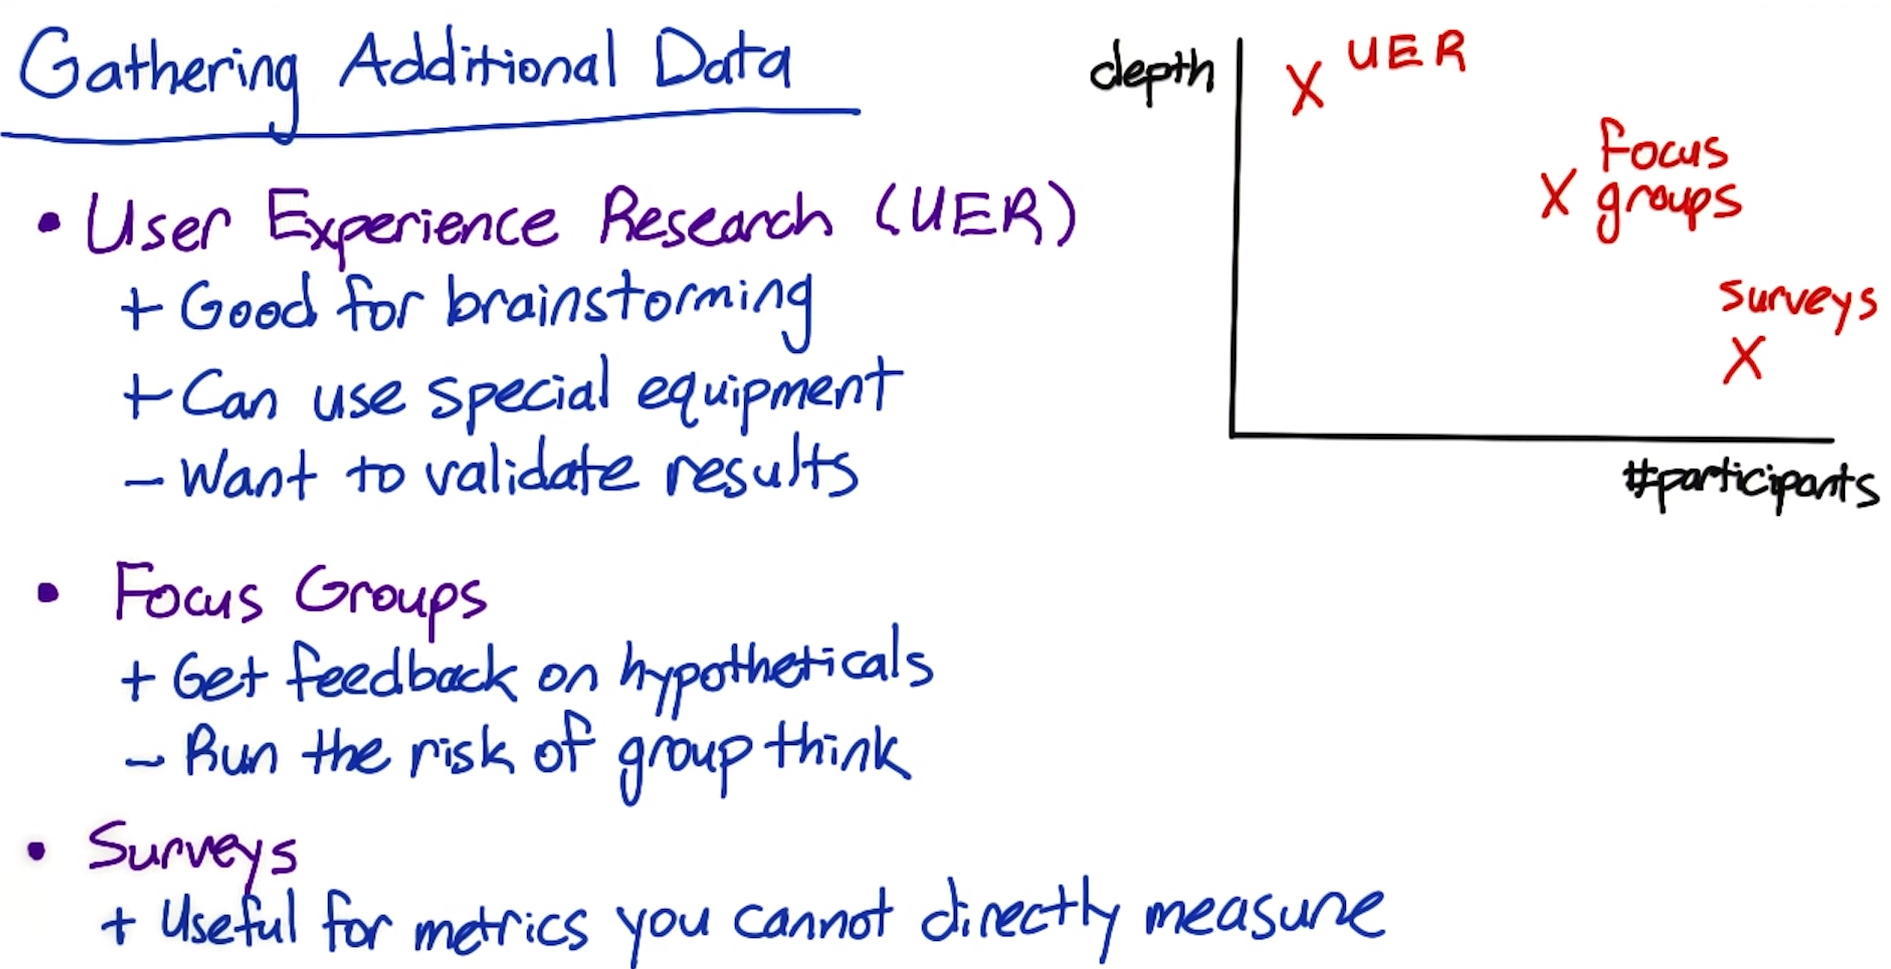 Gathering Additional Data
• User Experience Research (UER)
+ Good for brainstorming
+ Can use special equipment
- Want to validate results
• Focus Groups
+ Get feedback on hypotheticals
- Run the risk of group think
• Surveys
+ Useful for metrics you cannot directly measure
depth
X UER
Focus
X groups
surveys
X
#participants